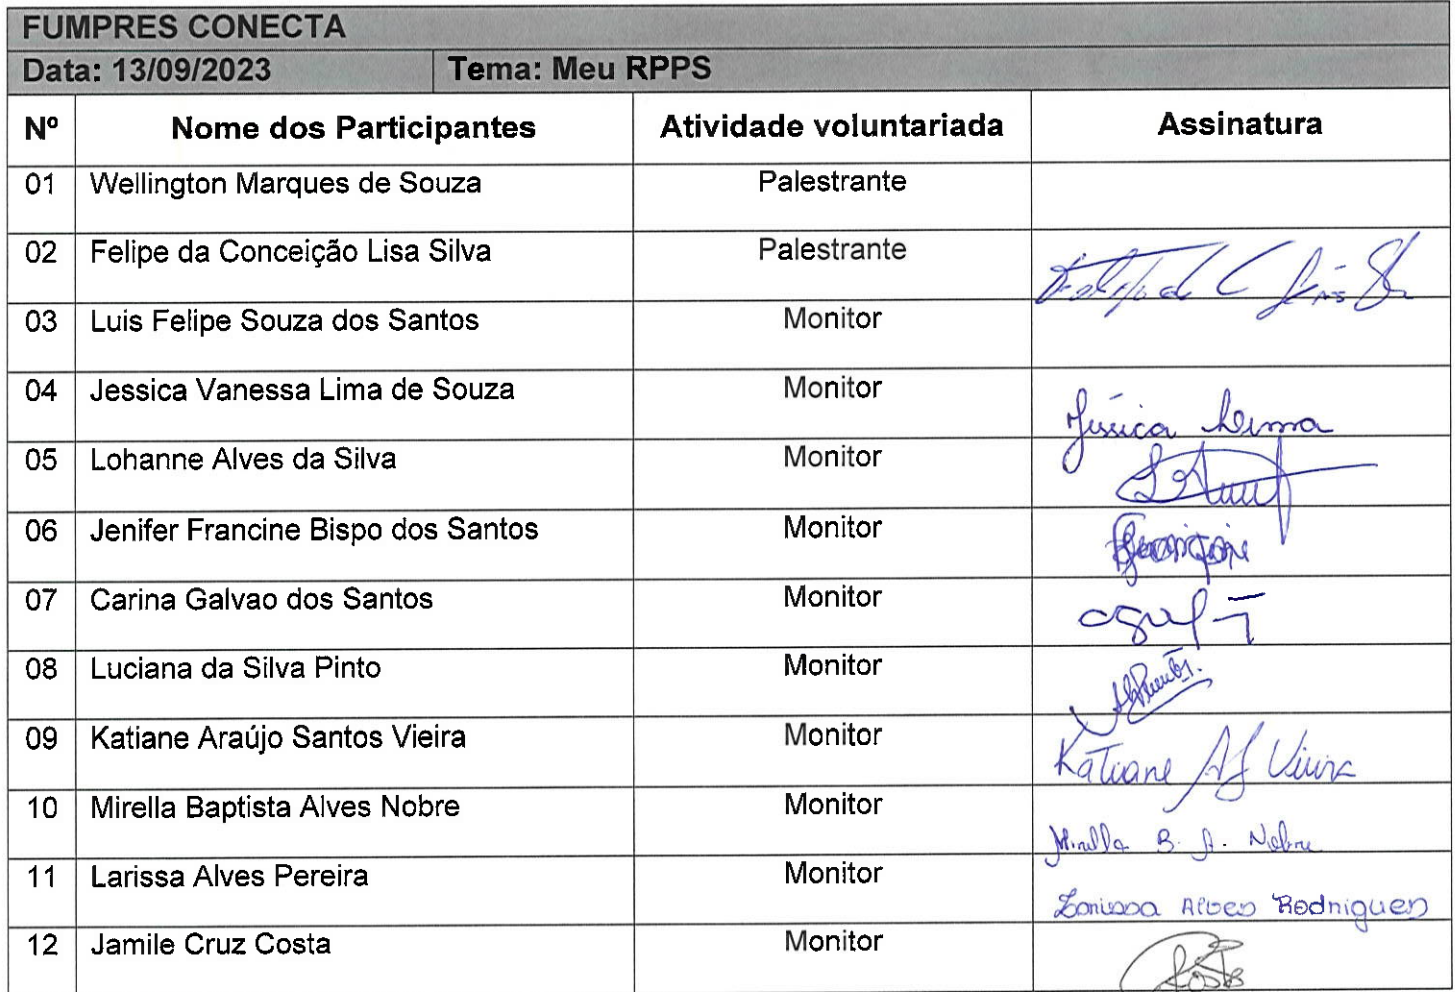 FUMPRES CONECTA
Data: 13/09/2023 Tema: Meu RPPS
Nº Nome dos Participantes Atividade voluntariada Assinatura
01 Wellington Marques de Souza Palestrante
02 Felipe da Conceição Lisa Silva Palestrante
03 Luis Felipe Souza dos Santos Monitor
04 Jessica Vanessa Lima de Souza Monitor Jéssica Lima
05 Lohanne Alves da Silva Monitor
06 Jenifer Francine Bispo dos Santos Monitor
07 Carina Galvao dos Santos Monitor
08 Luciana da Silva Pinto Monitor
09 Katiane Araújo Santos Vieira Monitor Katiane AS Vieira
10 Mirella Baptista Alves Nobre Monitor Mirella B. A. Nobre
11 Larissa Alves Pereira Monitor Larissa Alves Rodrigues
12 Jamile Cruz Costa Monitor